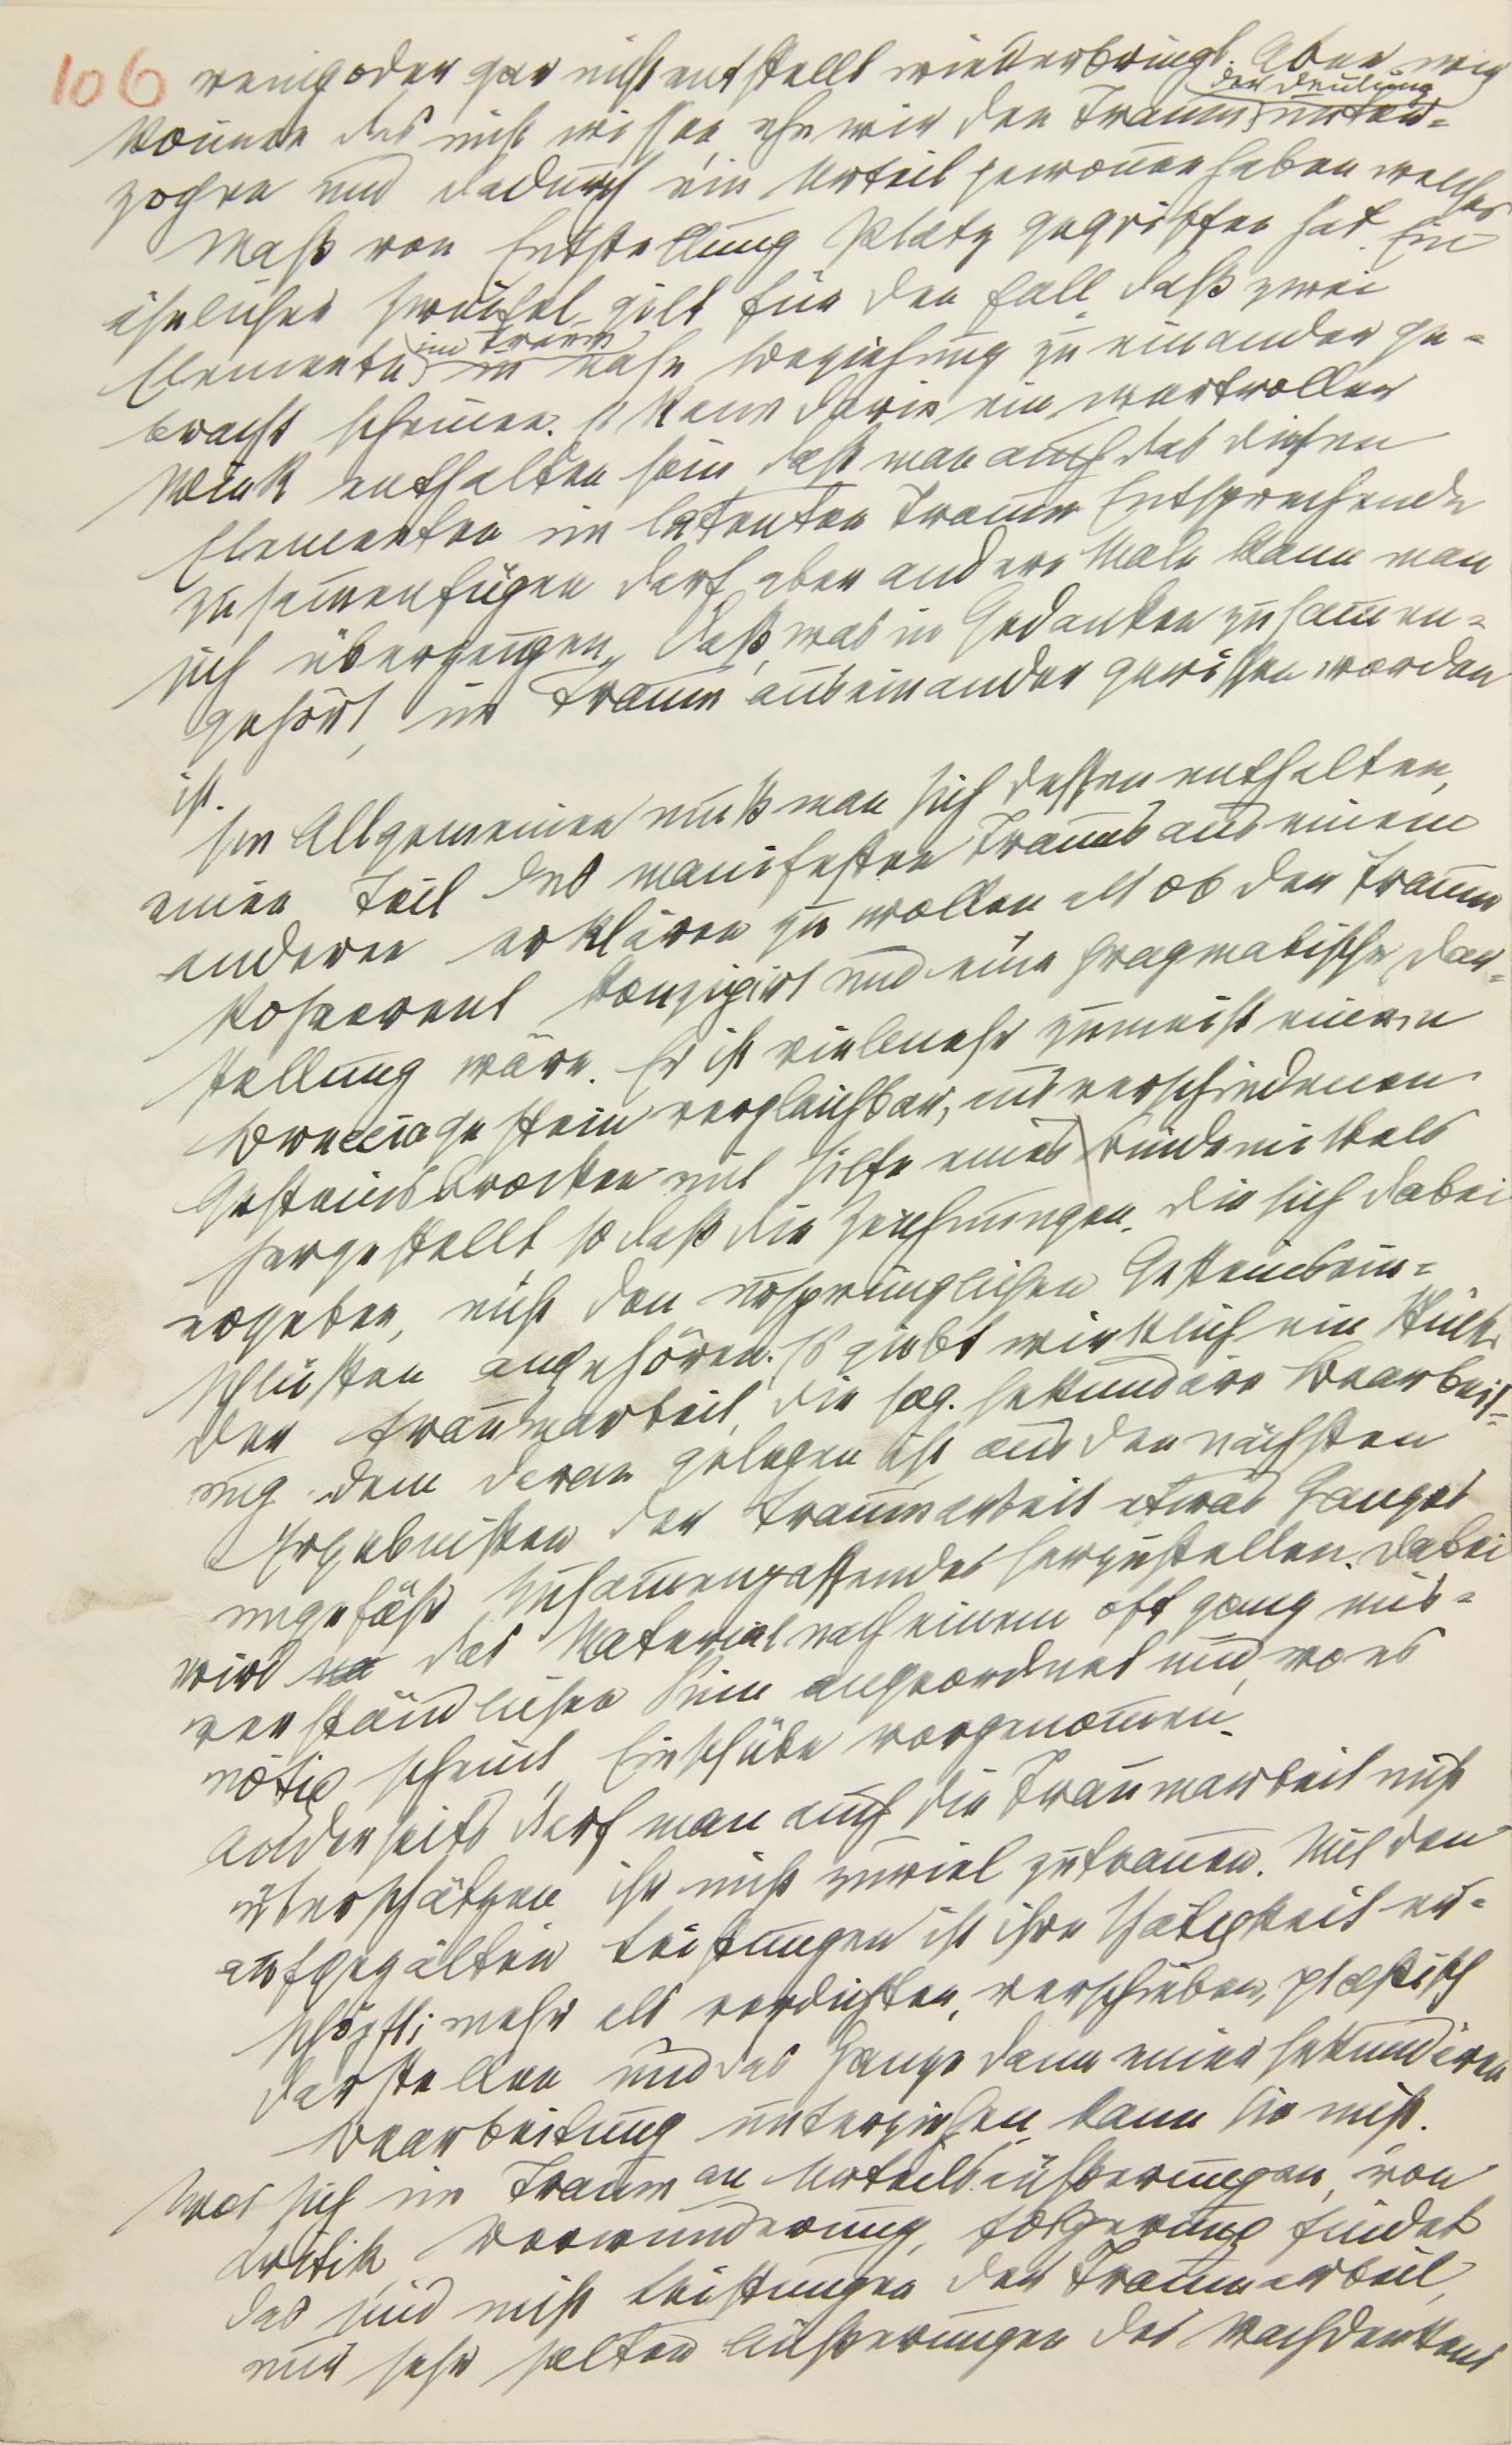 106 wenig oder gar nicht entstellt wiederbringt. Aber wir
können das nicht wissen, ehe wir den Traum der Deutung unter-
zogen und dadurch ein Urteil gewonnen haben welches
Maß von Entstellung Platz gegriffen hat. Ein
ähnlicher Zweifel gilt für den Fall, daß zwei
Elemente im Traum in nahe Beziehung zu einander ge-
bracht scheinen. Es kann darin ein wertvoller
Wink enthalten sein daß man auch das diesen
Elementen im latenten Traum Entsprechende
zusammenfügen darf, aber andere Male kann man
sich überzeugen, daß, was in Gedanken zusammen-
gehört, im Traum auseinander gerissen worden
ist.
Im Allgemeinen muß man sich dessen enthalten,
einen Teil des manifesten Traums aus einem
anderen erklären zu wollen als ob der Traum
kohärent konzipirt und eine pragmatische Dar-
stellung wäre. Er ist vielmehr zumeist einem
Brecciagestein vergleichbar, aus verschiedenen
Gesteinsbrocken mit Hilfe eines Bindemittels
hergestellt, so daß die Zeichnungen, die sich dabei
ergeben, nicht den ursprünglichen Gesteinsein-
schlüssen angehören. Es giebt wirklich ein Stück
der Traumarbeit, die sog. sekundäre Bearbeit-
ung, dem daran gelegen ist aus den nächsten
Ergebnissen der Traumarbeit etwas Ganzes
ungefähr Zusammenpassendes herzustellen. Dabei
wird das Material nach einem oft ganz mis-
verständlichen Sinn angeordnet und, wo es
nötig scheint, Einschübe vorgenommen.
Anderseits darf man auch die Traumarbeit nicht
überschätzen ihr nicht zuviel zutrauen. Mit den
aufgezälten Leistungen ist ihre Thätigkeit er-
schöpft; mehr als verdichten, verschieben, plastisch
darstellen und das Ganze dann einer sekundären
Bearbeitung unterziehen kann sie nicht.
Was sich im Traum an Urteilsäußerungen, von
Kritik, Verwunderung, Folgerung findet
das sind nicht Leistungen der Traumarbeit,
nur sehr selten Äußerungen des Nachdenkens